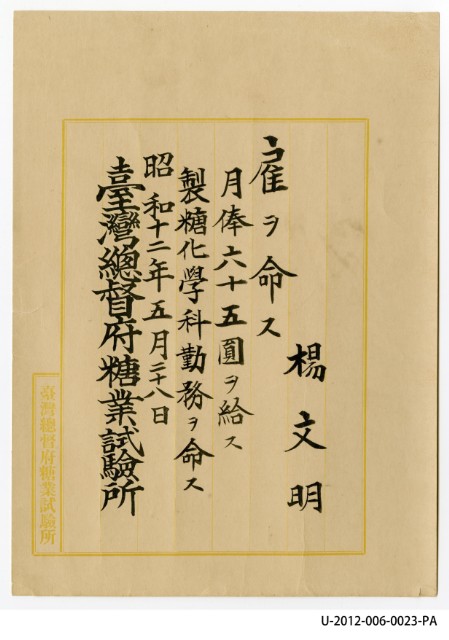 楊文明
雇ヲ命ス
月俸六十五圓ヲ給ス
製糖化學科勤務ヲ命ス
昭和十二年五月二十八日
臺灣總督府糖業試驗所
臺灣總督府糖業試驗所
U-2012-006-0023-PA